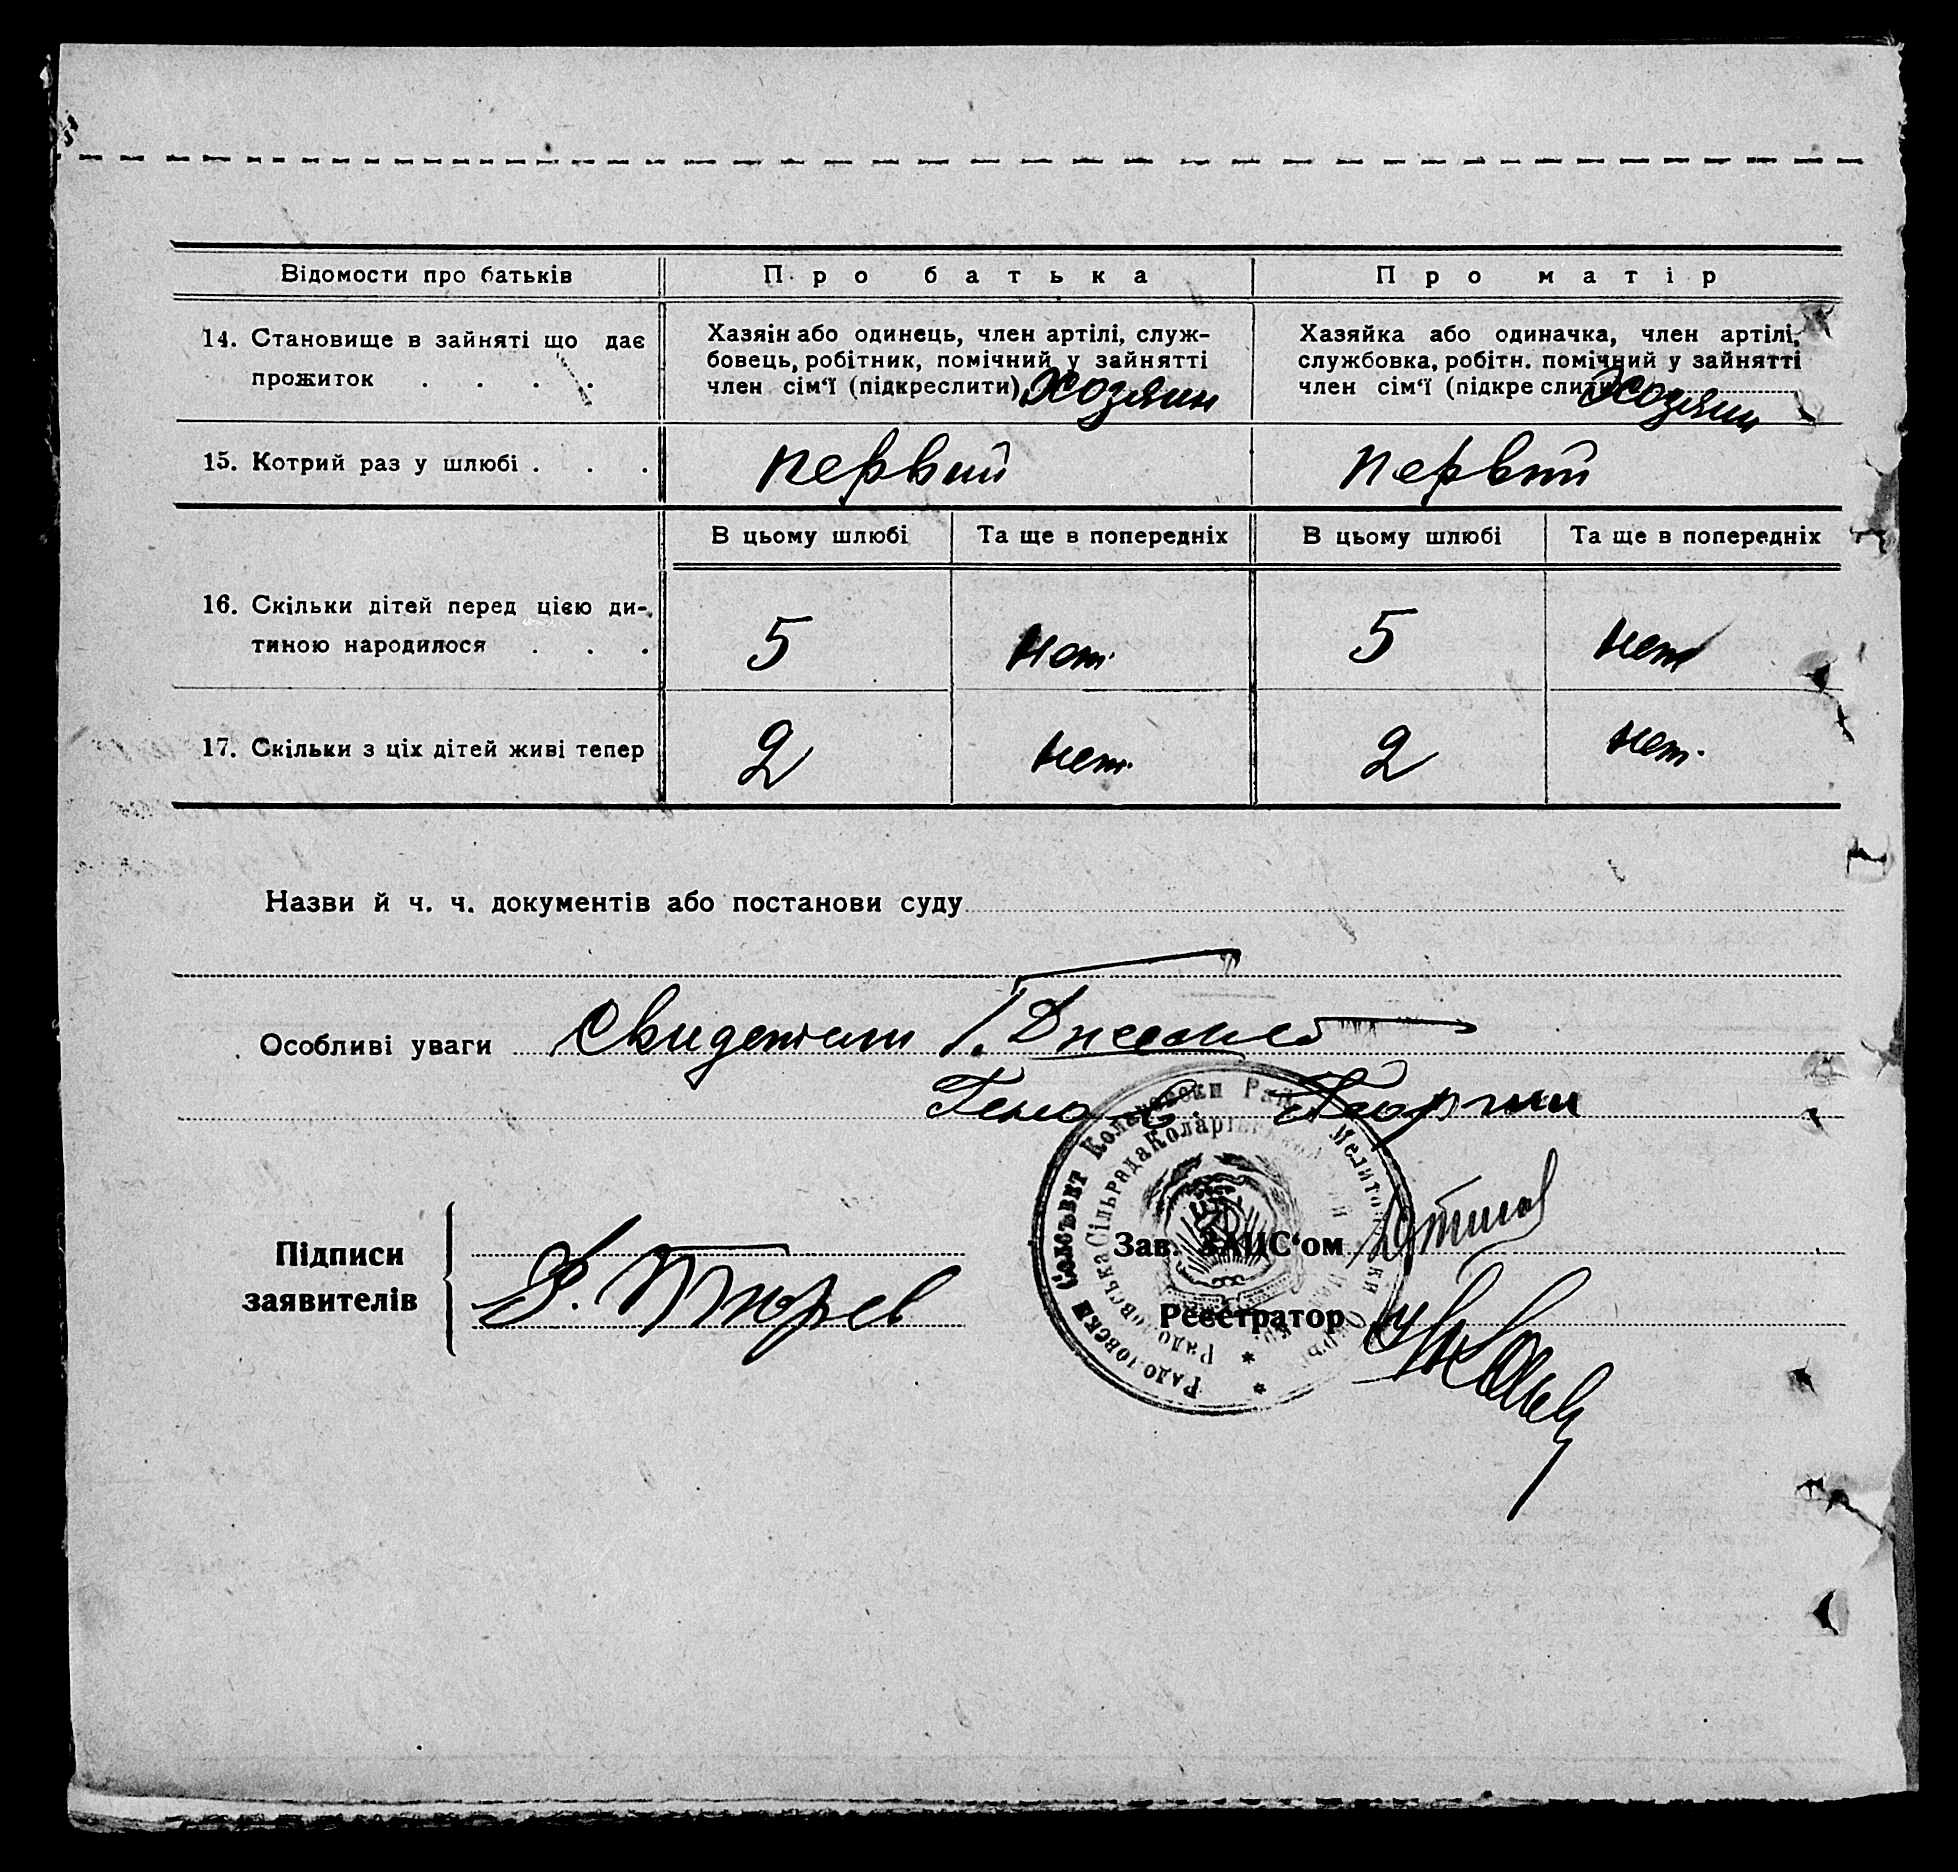 Відомости про батьків
Про батька
Про матір
14. Становище в зайняті що дає
прожиток . . . .
Хазяін або одинець, член артілі, служ-
бовець, робітник, помічний у зайнятті
член сім'ї (підкреслити) Хозяин
Хазяйка або одиначка, член артілі,
службовка, робітн. помічний у зайнятті
член сім'ї (підкреслити) Хозяин
15. Котрий раз у шлюбі . . .
первий
первий
В цьому шлюбі
Та ще в попередніх
В цьому шлюбі
Та ще в попередніх
16. Скільки дітей перед цією ди-
тиною народилося . . .
5
нет
5
нет
17. Скільки з ціх дітей живі тепер
2
нет
2
нет
Назви й ч. ч. документів або постанови суду
Особливі уваги
Георгии
Підписи
заявителів
Зав. ЗАГС'ом
Реєстратор
Радоловски Селсъвет Коларовски Рай Мелитопол
Радоловська Сільрада Коларівськ